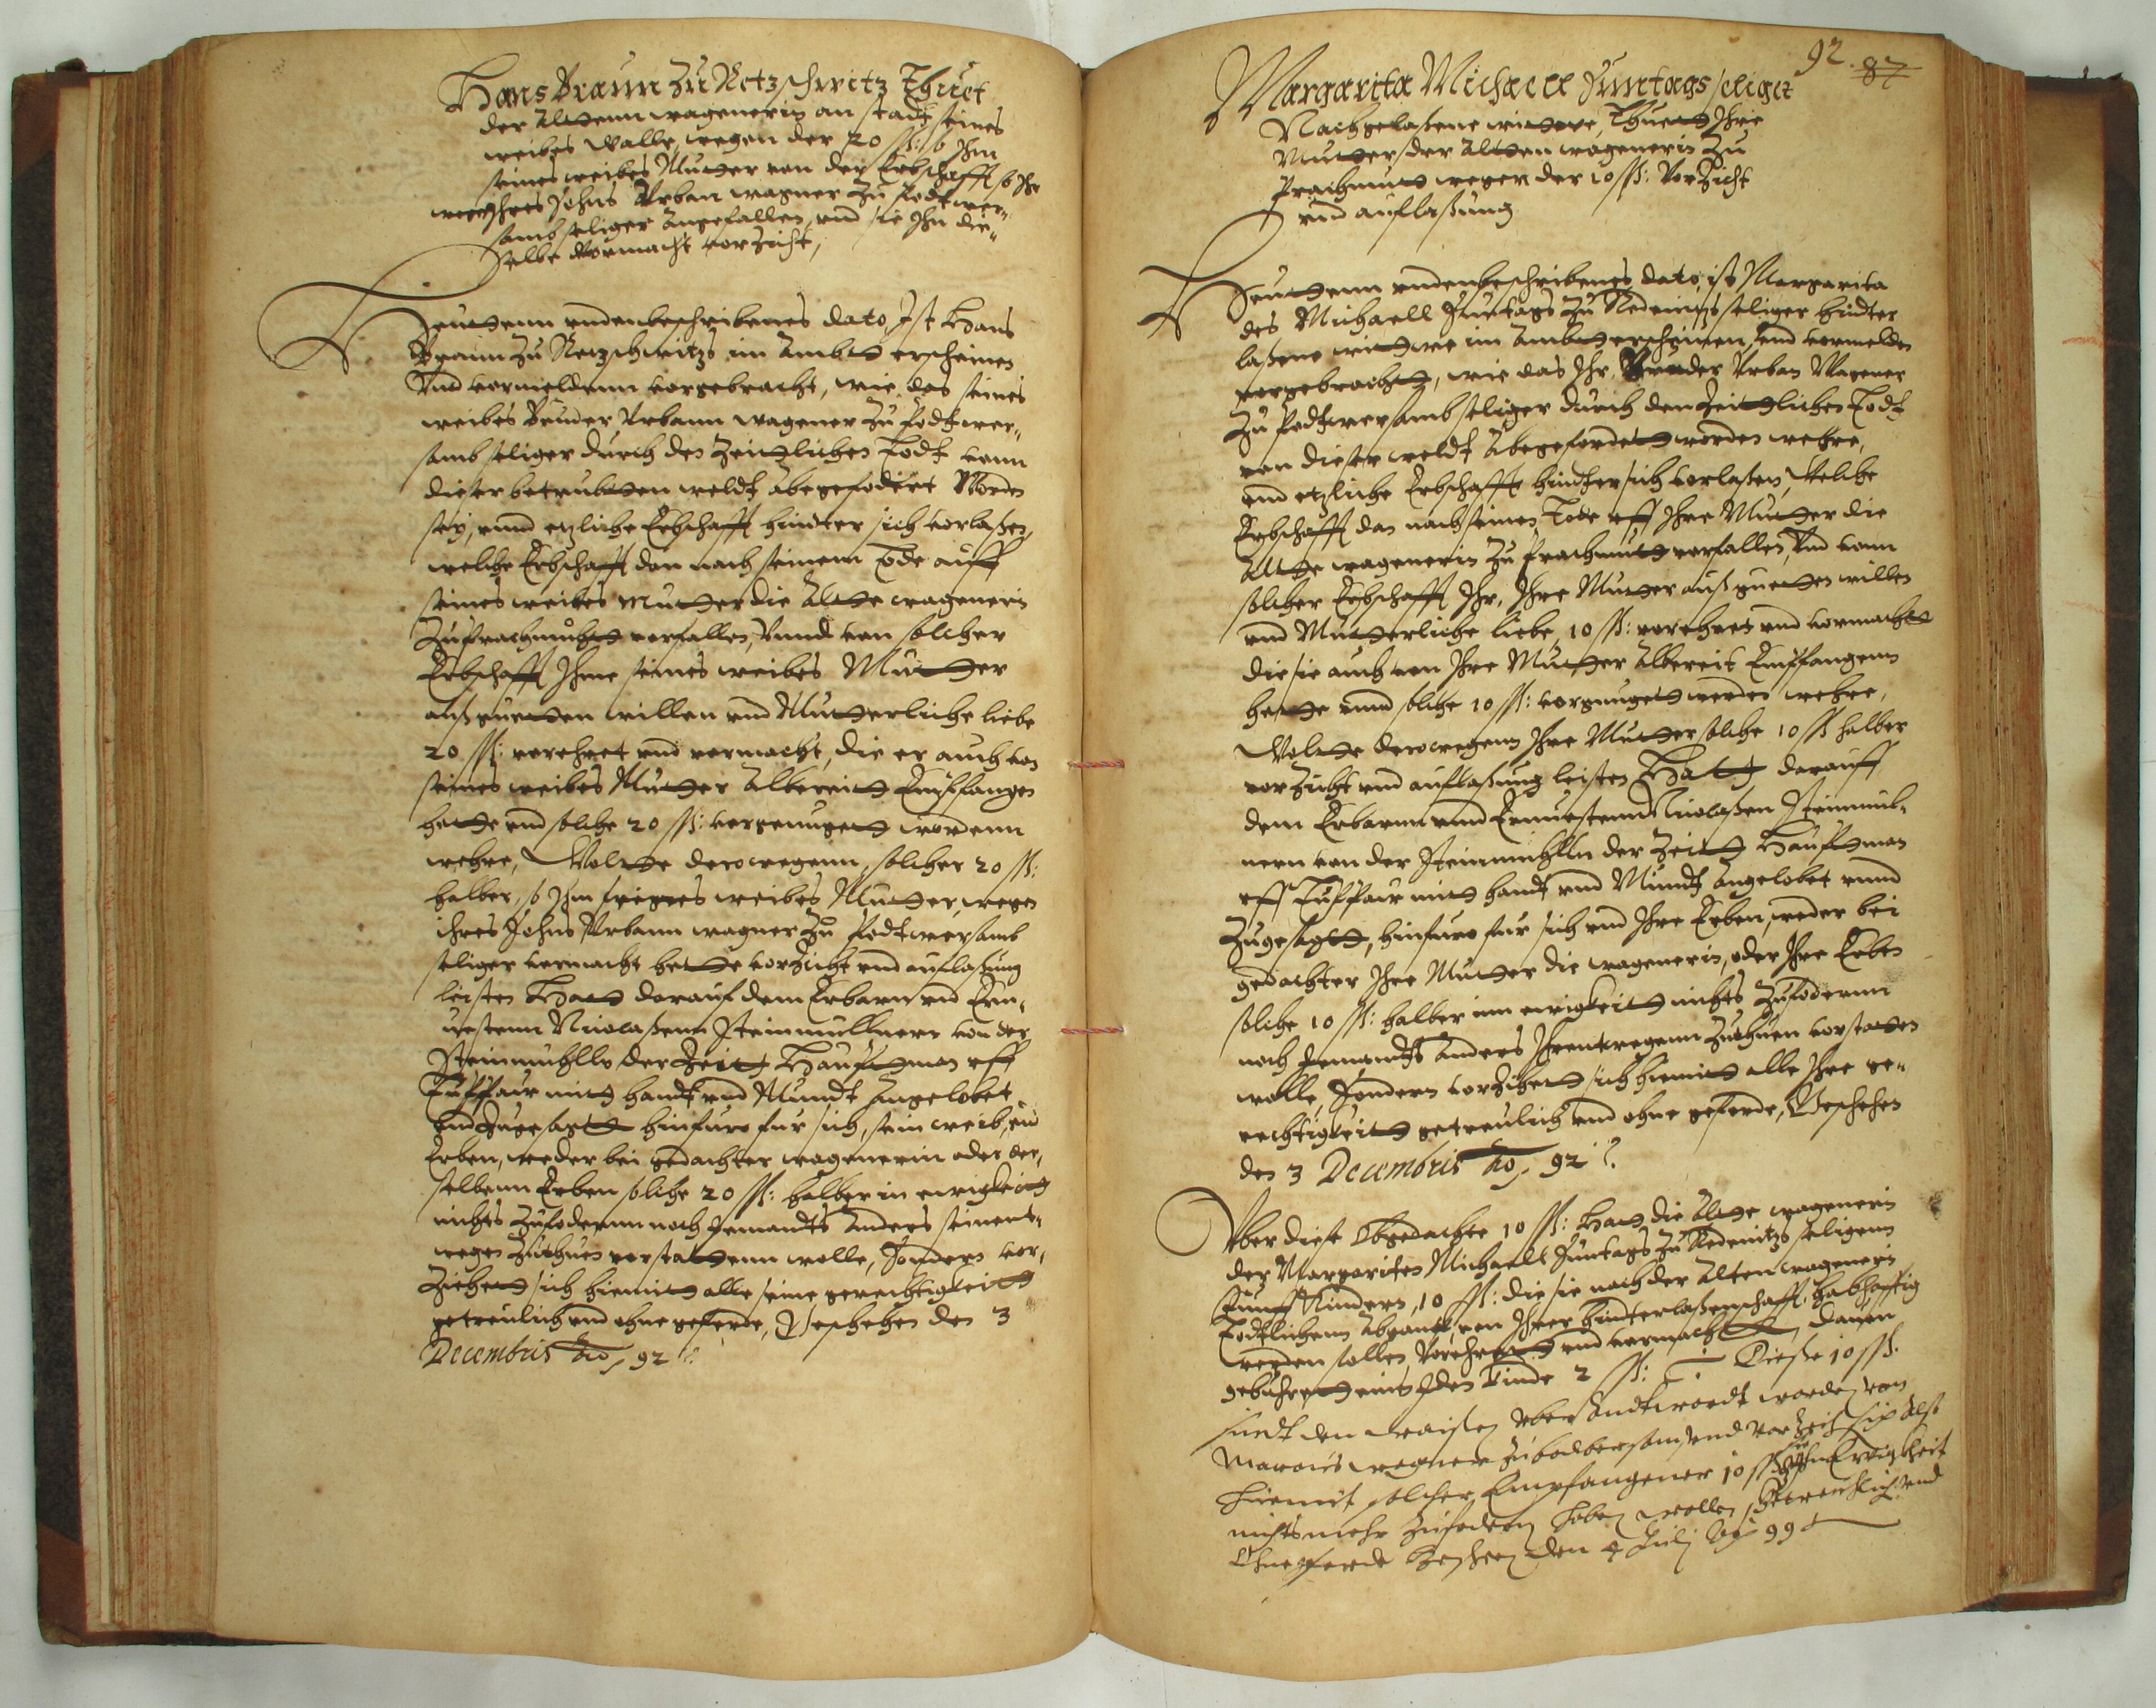 Hans Braun zu Netzschwitz Thuet
der Altenn wagenerin an stadt seines
weibes Valle, wegen der 20 ß: so Ihm
seines weibes Mutter von der Erbschafft so Ihr
wegen Ihres Sohns Urban wagner zu Podtwer-
samb seliger angefallen, und sie Ihn die-
selbe vormacht vorzicht,
Heuttenn undenbeschribenes dato, Ist Hans
Braun zu Netzschwitz im Ambtt erscheinen
Und vormeldenn vorgebracht, wie das seines
weibes Bruder Urbann wagener zu Podtwer-
samb seliger durch den Zeitlichen Todt vonn
dieser betrubtten weldt abgefodert Worden
sey, unnd etzliche Erbschafft hinder sich vorlaßen,
welche Erbschafft dan nach seinem Tode auff
seines weibes Mutter die Altte wagenerin
zu Prachmutt vorfallen, Unnd von solcher
Erbschafft Ihme seines weibes Mutter
auß gutten willen und Mutterliche liebe
20 ß: vorehret und vormacht, die er auch von
seines weibes Mutter albereitt Empfangen
hatte und solche 20 ß: vorgenugett wordenn
wehre, Woltte derowegenn, solcher 20 ß:
halber, so Ihm seines weibes Mutter, wegen
ihres Sohns Urbann wagner zu Podtwersamb
seliger vormacht hette vorzicht und auflaßung
leisten Hatt darauf dem Erbarn und Ern-
vestenn Nicolaßenn Steinmullnern von der
Steinmuhlln der Zeitt Hauptman uff
Tüppau mitt handt und Mundt angelobet
und zugesagtt hinfuro fur sich, sein weib, und
Erben, weder bei gedachter wagenerin oder der-
selbenn Erben solche 20 ß: halber in ewigkeitt
nichts zufodernn noch Jemandts anders seinent-
wegen zuthuen vorstattenn wolle, Sondern vor-
ziehett sich hiemitt alle seine gerechtigkeitt
getreulich und ohne geferde, Geschehen den 3
Decembris Ao, 92
92. 87
Margarita Michaell Suntags seliger
Nachgelaßene wittwe, Thuett Ihre
Mutter der Altten wagenerin zu
Prachmutt wegen der 10 ß: Vorzicht
und auflaßung
Heuttenn undenbeschribenes dato, ist Margarita
des Michaell Suntags zu Redenitz seliger hinder
laßene wittwe im Ambtt erscheinen, und vormelden
vorgebrachtt, wie das Ihr Bruder Urban Wagener
zu Podtwersamb seliger durch den Zeittlichen Todt
von dieser weldt abgefordertt worden wehre,
und etzliche Erbschafft hindter sich vorlaßen, Welche
Erbschafft dan nach seinen Tode uff Ihre Mutter die
Altte wagenerin zu Prachmutt vorfallen, Und vonn
solcher Erbschafft Ihr, Ihre Mutter auß gutten willen
und Mutterliche liebe, 10 ß: vorehret und vormachtt
die sie auch von Ihre Mutter albereit Empfangenn
hatte unnd solche 10 ß: vorgnugett worden wehre,
Woltte derowegenn Ihre Mutter solche 10 ß halber
vorzicht und auflaßung leisten Hatt darauff
dem Erbarnn unnd Ernvestenn Nicolaßen Steinmul-
nern von der Steinmuhlln der Zeitt Hauptman
uff Tüppau mitt handt und Mundt angelobet unnd
zugesagtt, hinfuro fur sich und Ihre Erben, weder bei
gedachter Ihre Mutter die wagenerin, oder Ihre Erben
solche 10 ß: halber inn ewigkeitt nichts zufodernn
noch Jemandts anders Ihrentwegenn zuthuen vorstatten
wolle, Sondern vorzihett sich hiemitt alle Ihre ge-
rechtigkeitt getreulich und ohne geferde, Geschehen
den 3 Decembris Ao, 92
Uber diese Obgedachte 10 ß: Hatt die Altte wagenerin
der Margariten Michaell Suntags zu Redenitz seligenn
Funff Kindern, 10 ß: die sie nach der Alten wagenerin
Todtlichenn Abgantt, von Ihrer hinterlaßenschafft, habhafftig
werden sollen, Vorehrett und vormachtt, davon
gebuhrett eins Jden Kinde 2 ß: Diese 10 ß.
sindt den waisen uberandtwordt worden von
Marcus wagner zu bodbersam und vorzeihe sich also
hiemit solcher Empfangener 10 ß in Ewigkheit
nichts mehr zufodern haben wollen, getreulich und
Ohne geferde Geschen den 4 Julj Ao 99